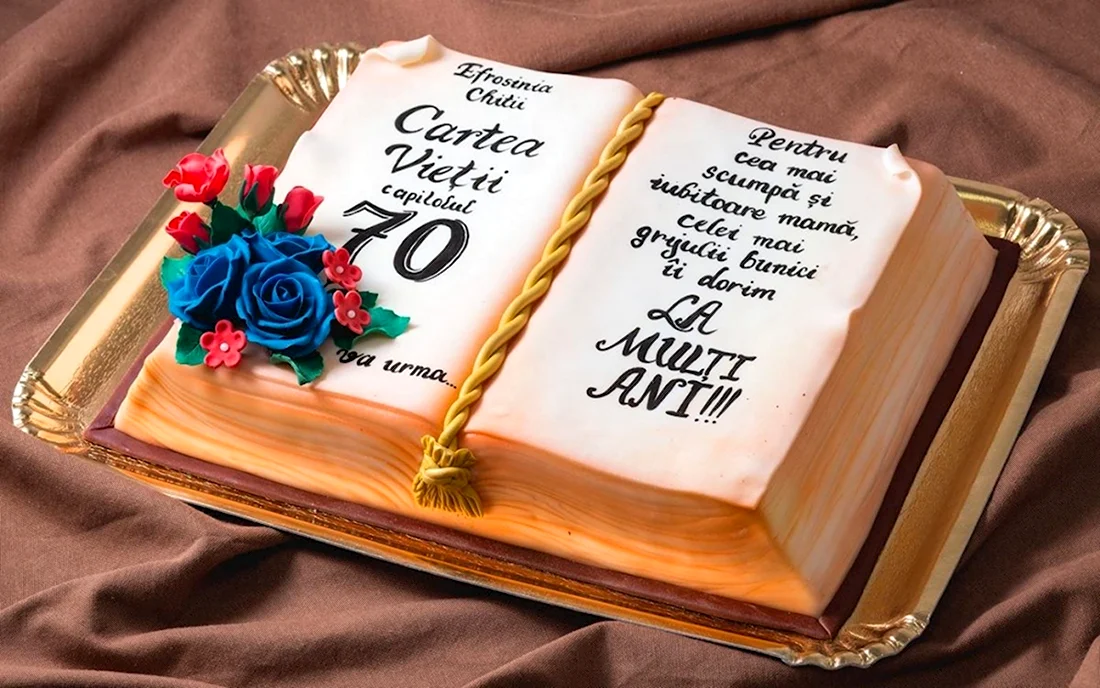 Efrosinia
Chitii
Cartea
Vieții
capitolul
70
va urma...
Pentru
cea mai
scumpă și
iubitoare mamă,
celei mai
grijulii bunici
îi dorim
LA
MULȚI
ANI!!!